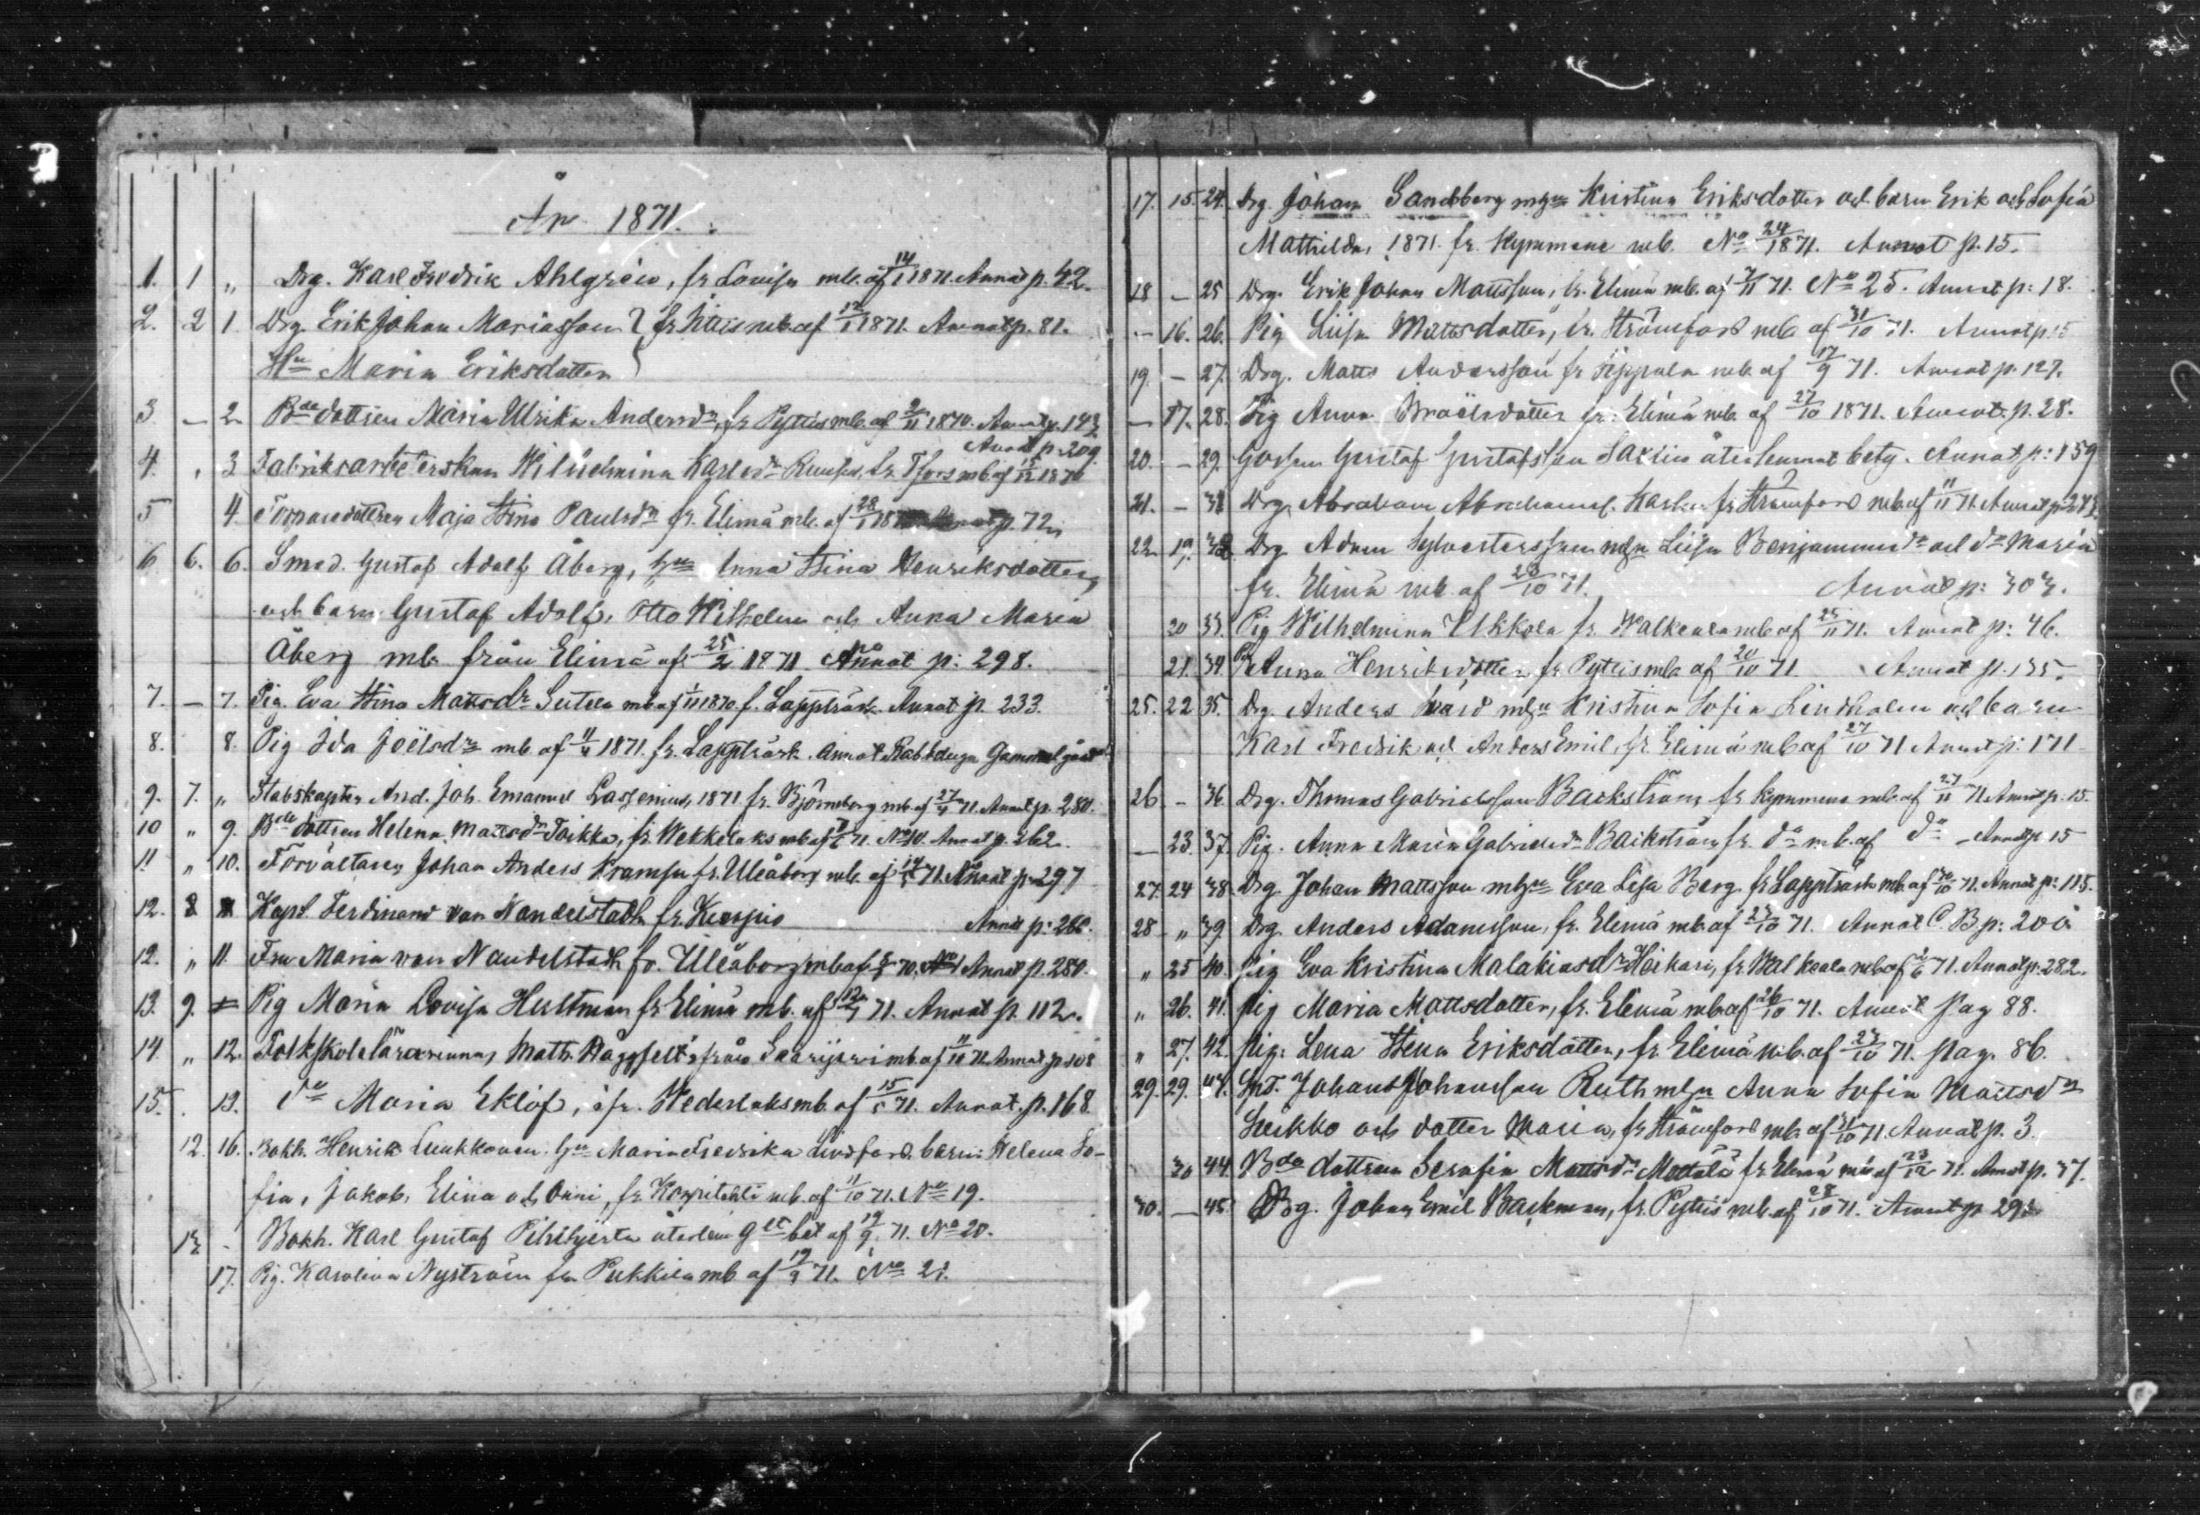 År 1871.
1. 1 „ Drg. Karl Fredrik Ahlgrén, fr Lovisa mb. af 14/1 1871. Annot p. 42.
2. 2 1. Drg Erik Johan Mariasson } fr Ittis mb. af 12/1 1871. Annot p. 81.
Hu Maria Eriksdotter
3 — 2. Bde dottren Maria Ulrika Andersdr, fr Pyttis mb. af 2/11 1870. Annot p. 143
Annot p. 209
4. „ 3 Fabriksarbeterskan Wilhelmina Karlsdr fr. Tfors mb af 15/12 1870
5 4. Torparedottren Maja Stina Paulsdr fr. Elimä mb. af 28/1 p. 72
6 6. 6. Smed. Gustaf Adolf Åberg, hu Anna Stina Henriksdotter,
och barn Gustaf Adolf, Otto Wilhelm och Anna Maria
Åberg mb. från Elimä af 25/2 1871 Annot p: 298.
7. — 7. Pig. Eva Stina Mattsdr Seitola mb af 1/11 1870 f. Lappträsk. Annot p. 233.
8. 8. Pig Ida Joëlsdr mb af 11/4 1871. fr. Lappträsk. Annot Rabbduga Gammelgård
9. 7. „ Stabskapten And. Joh. Emanuel Lagenius, 1871 fr. Björneborg mb. af 27/4 71. Annot p. 280.
10 „ 9. Bde dottren Helena Mattsdr Toikka, fr. Wekkelaks mb af 71. No 10. Annot p. 262.
11 „ 10. Förvaltaren Johan Anders Kramsu fr. Uleåborg mb. af 14/5 71. Annot p. 297
12. 8 Kapt. Ferdinand von Nandelstadh fr. Kuopio Annot p: 260.
12. „ 11. Fru Maria von Nandelstadh fr. Uleåborg mb af 70, Annot p. 280.
13. 9. Pig Maria Lovisa Hultman fr Elimä mb. af 71. Annot p. 112.
14. „ 12. Folkskolelärarinnan Math. Häggfelt från Saarijervi mb. af 11/10 71. Annot p. 108
15. 13. do Maria Eklöf, fr. Wederlaks mb. af 15/5 71. Annot. p. 168
12. 16. Bokh. Henrik Luukkonen hu Maria Fredrika Lindfors barn: Helena So-
fia, Jakob, Elina och Onni, fr. Kopitahti mb. af 11/10 71. No 19.
13 - Bokh. Karl Gustaf återlem. bet af 19/9. 71. No 20.
17. Pig. Karolina Nyström från Pukkila mb af 19/9 71. No 21.
17. 15 24. Drg. Johan Sandberg m hu Kristina Eriksdotter och barn Erik och Sofia
Mathilda, 1871. fr. Kymmene mb. No 24/1871. Annot p. 15.
18 — 25 Drg. Erik Johan Mattsson, fr. Elimä mb. af 7/11 71. No 25. Annot p: 18.
— 16. 26. Pig Liisa Mattsdotter, fr. Strömfors mb. af 31/10 71. Annot p. 15
19. — 27. Drg. Matts Andersson fr Sippola mb. af 17/9 71. Annot p. 127.
— 17. 28. Pig Anna dotter fr. Elimä mb. af 27/10 1871. Annot. p. 28.
20. — 29. Gossen Gustaf Gustafsson återlemnat bety. Annot p: 159
21. — 31 Drg. Abraham Abrahamss. fr Strömfors mb. af 11/11 71. Annot p 243.
22. 19. 32 Drg. Adam Sylvestersson m hu Liisa Benjaminsdr och dr Maria
fr. Elimä mb. af 28/10 71. Annot p: 303.
20 33. Pig Wilhelmina Ukkola fr. Walkeala mb af 25/11 71. Annot p: 46.
21. 34. Pig Anna Henriksdotter, fr Pyttis mb. af 20/10 71. Annot p. 135.
25. 22 35. Drg. Anders Svärd m hu Kristina Sofia Lindholm och barn
Karl Fredrik och Anders Emil, fr. Elimä mb af 27/10 71 Annot p: 171
26 — 36. Drg. Thomas Gabrielsson Backström fr Kymmene mb. af 27/11 71 Annot p. 15.
— 23. 37. Pig. Anna Maria Gabrielsdr Backström fr. do mb. af do — Annot p. 15
27. 24 38. Drg. Johan Mattsson m hu Eva Lisa Berg fr Lappträsk mb. af 30/10 71. Annot p: 115.
28 „ 39 Drg. Anders Adamsson, fr. Elimä mb. af 23/10 71. Annot C. B p: 200
„ 25 40. Pig Eva Kristina Malakiasdr Heikari, fr Walkeala mb af 71. Annot p. 282.
„ 26. 41. Pig Maria Mattsdotter, fr. Elimä mb af 26/10 71. Annot Pag 88.
„ 27. 42. Pig. Lena Stina Eriksdotter, fr. Elimä mb. af 23/10 71. Pag. 86.
29. 29. 43. Spt. Johan Johansson Ruth m hu Anna Sofia Mattsdr
och dotter Maria, fr Strömfors mb. af 31/10 71. Annot p. 3.
30 44. Bde dottren Serafia Mattsdr Mattila fr Elimä mb af 23/12 71. Annot p. 37.
30. — 45. Drg. Johan Emil Backman, fr. Pyttis mb. af 28/10 71. Annot p 293